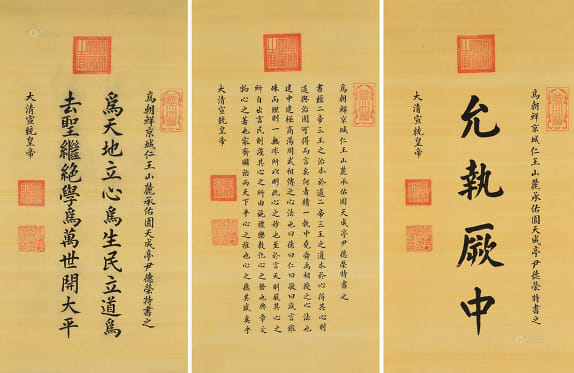 爲朝鮮京城仁王山麓承佑圓天成亭尹德榮特書之
爲天地立心爲生民立道爲
去聖繼絶學爲萬世開大平
大清宣統皇帝
爲朝鮮京城仁王山麓承佑圓天成亭尹德榮特書之
書經二帝三王之治本於道二帝三王之道本於心得其心則
道與治固可得而言矣何者精一執中堯舜禹相授之心法也
建中建極商湯周武相傳之心法也曰德曰仁曰敬曰誠言雖
殊而理則一無非所以明此心之妙也至於言天則嚴其心之
所自出言民則謹其心之所由施禮樂教化心之發也典章文
物心之著也家齊國治而天下平心之推也心之德其盛矣乎
大清宣統皇帝
爲朝鮮京城仁王山麓承佑圓天成亭尹德榮特書之
允執厥中
大清宣統皇帝